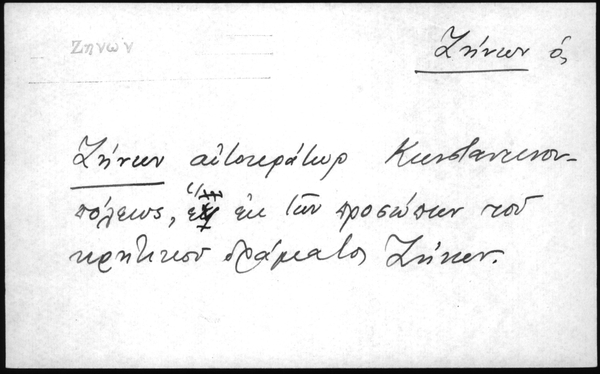 Ζηνών
Ζήνων ὁ,
Ζήνων αὐτοκράτωρ Κωνσταντινου-
πόλεως, ἐκ τῶν προσώπων τοῦ
κρητικοῦ δράματος Ζήνων.